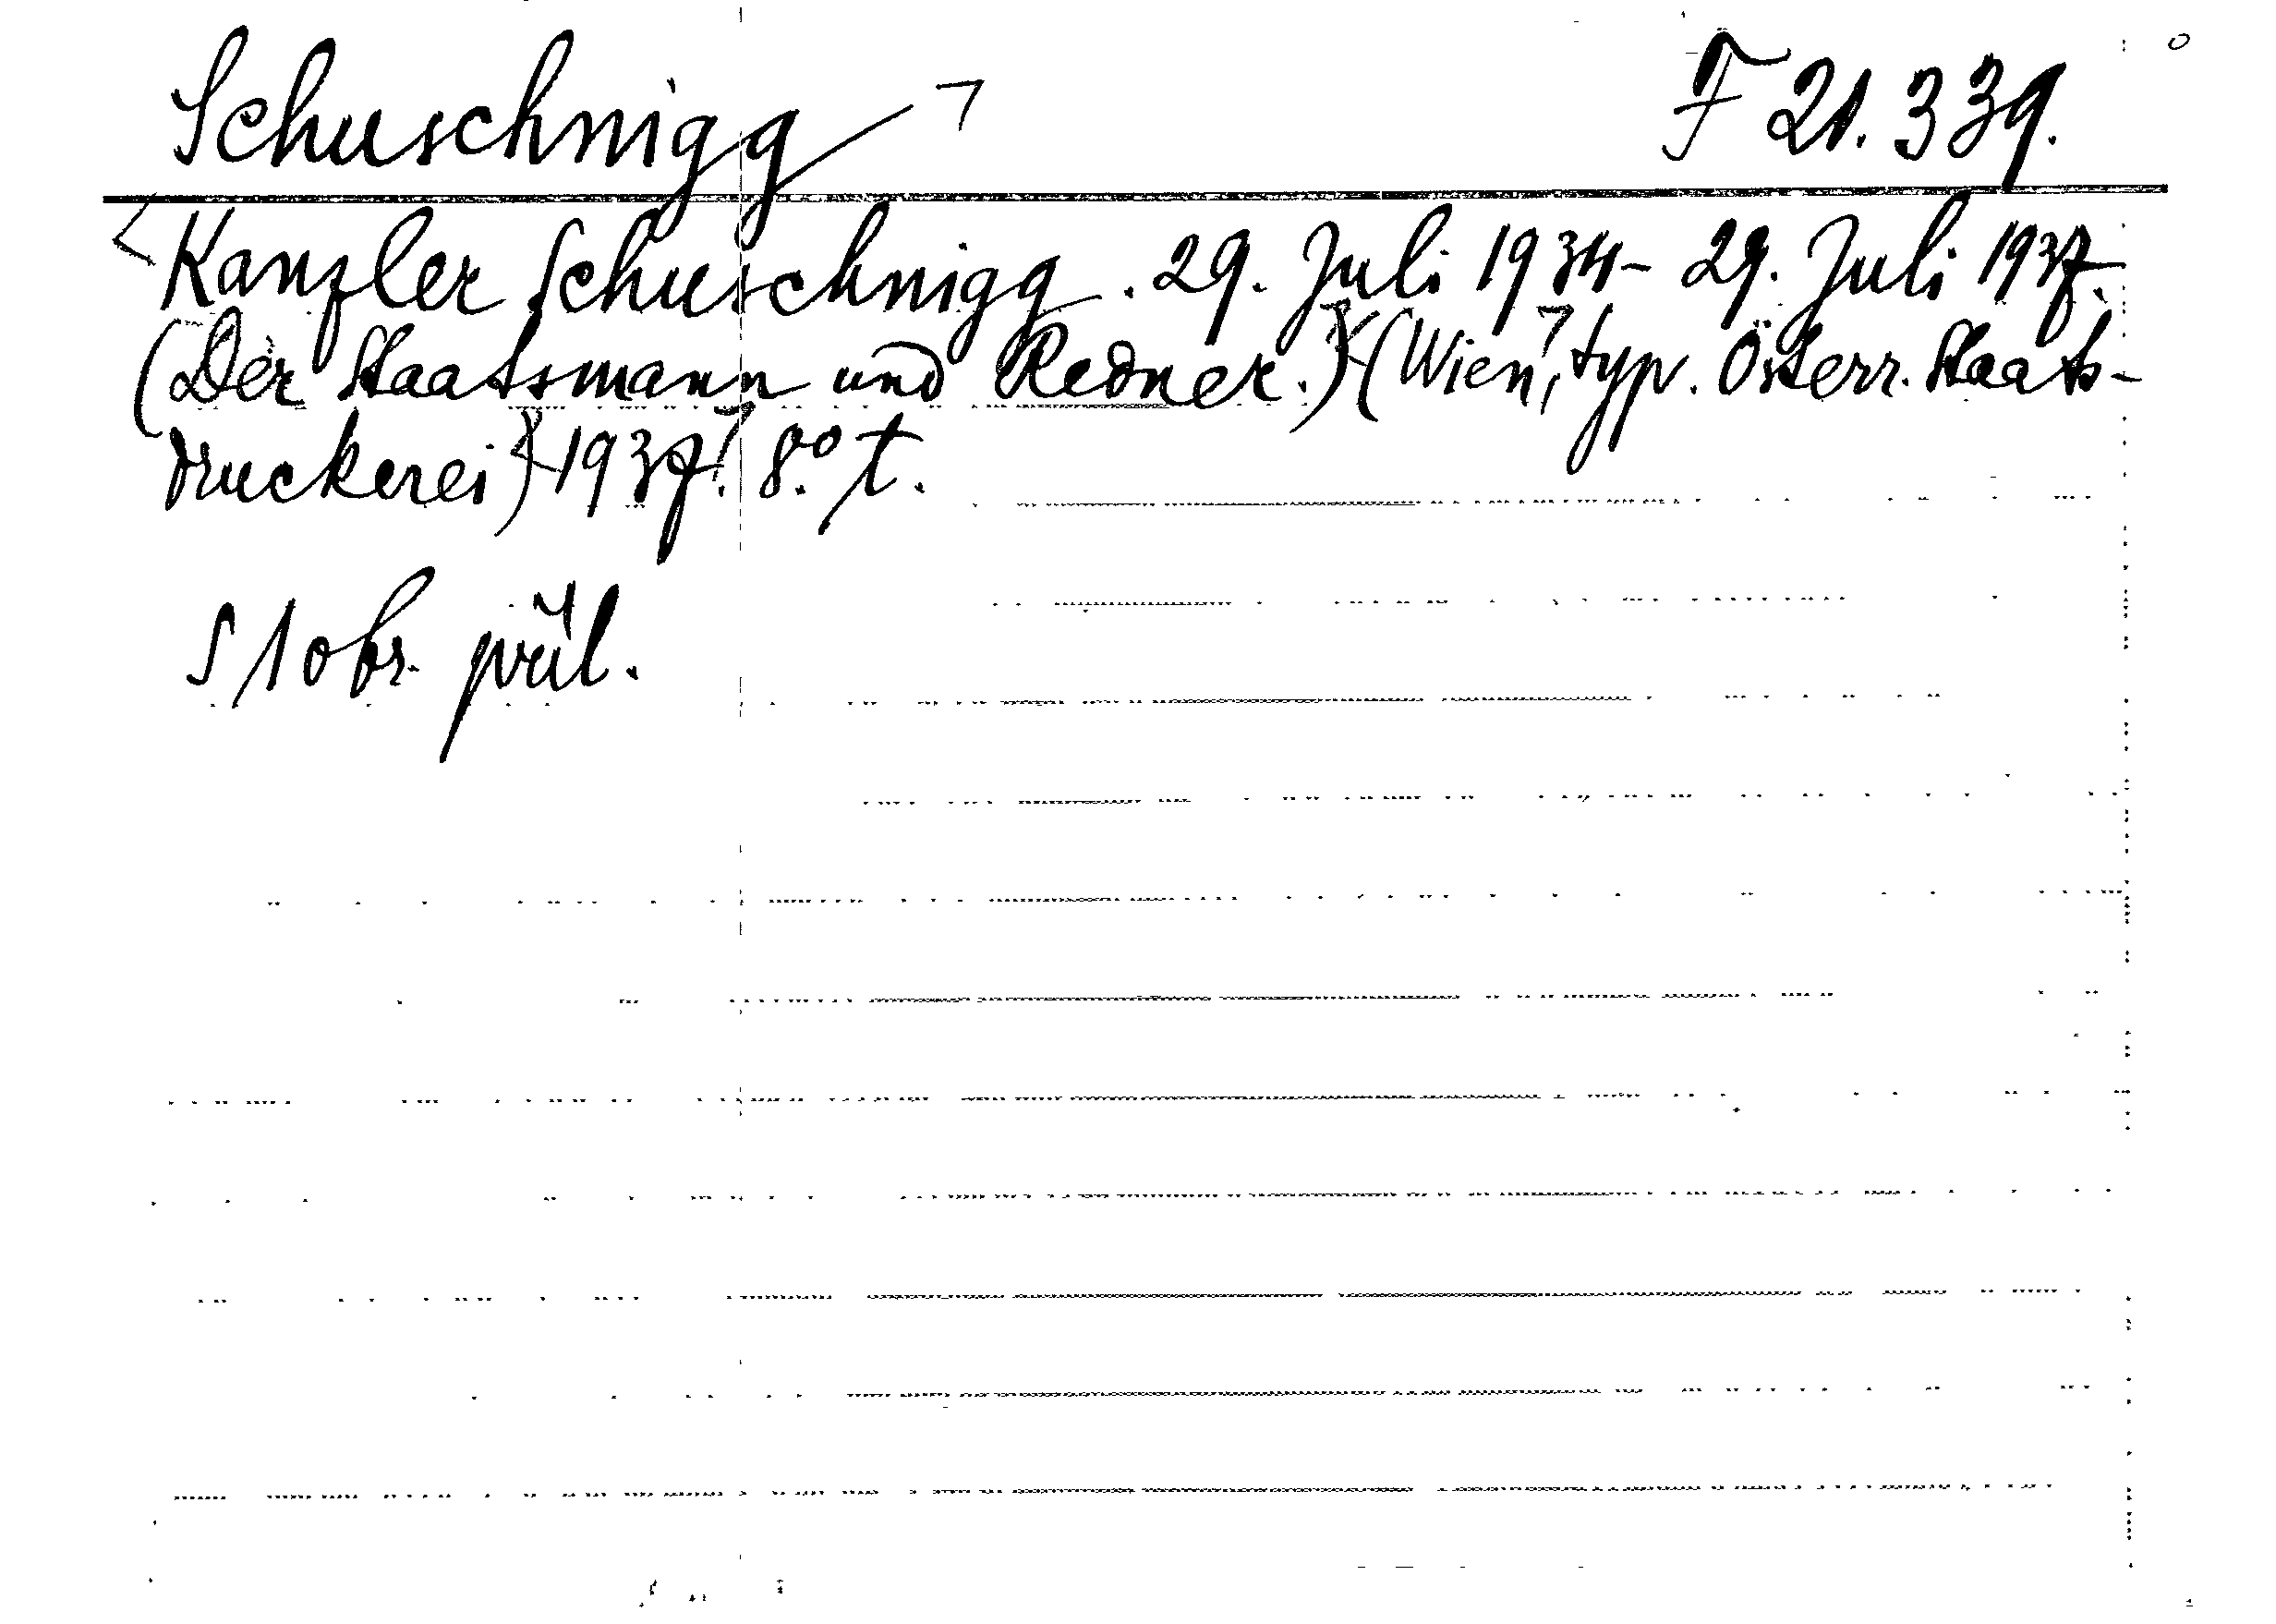 Schuschnigg F 21.339.
Kanzler Schuschnigg. 29. Juli 1934 - 29. Juli 1937.
(Der Staatsmann und Redner.) (Wien, typ. Österr. Staats-
druckerei) 1937. 8.° t.
S 1 obr. příl.